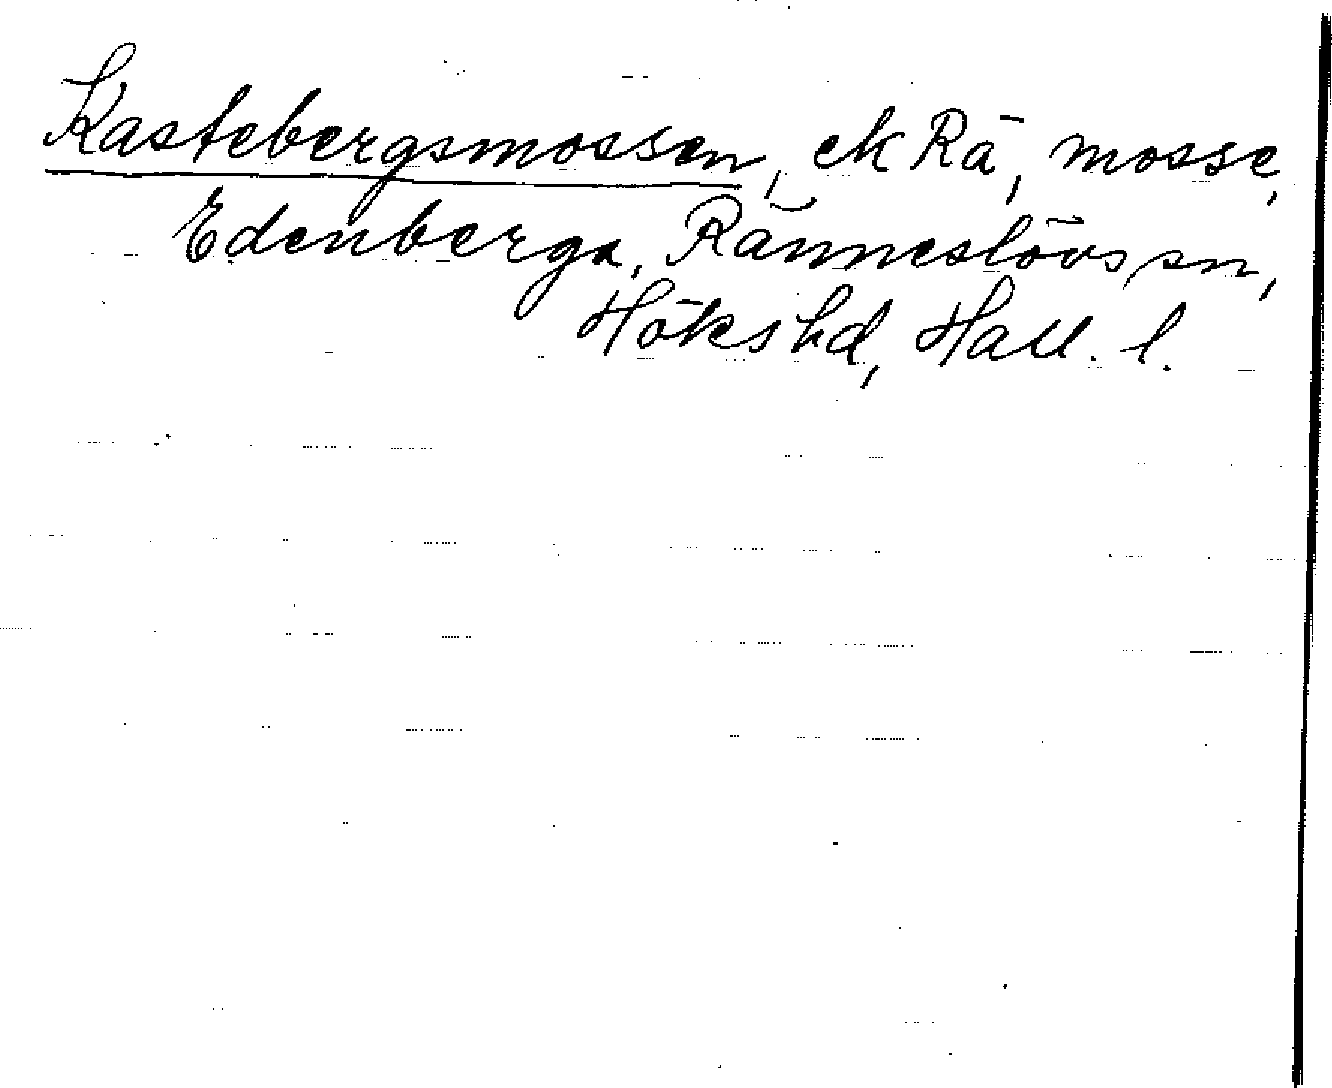 Kastebergsmossen, ek Rä, mosse,
Edenberga, Ränneslövs sn,
Höks hd, Hall. l.